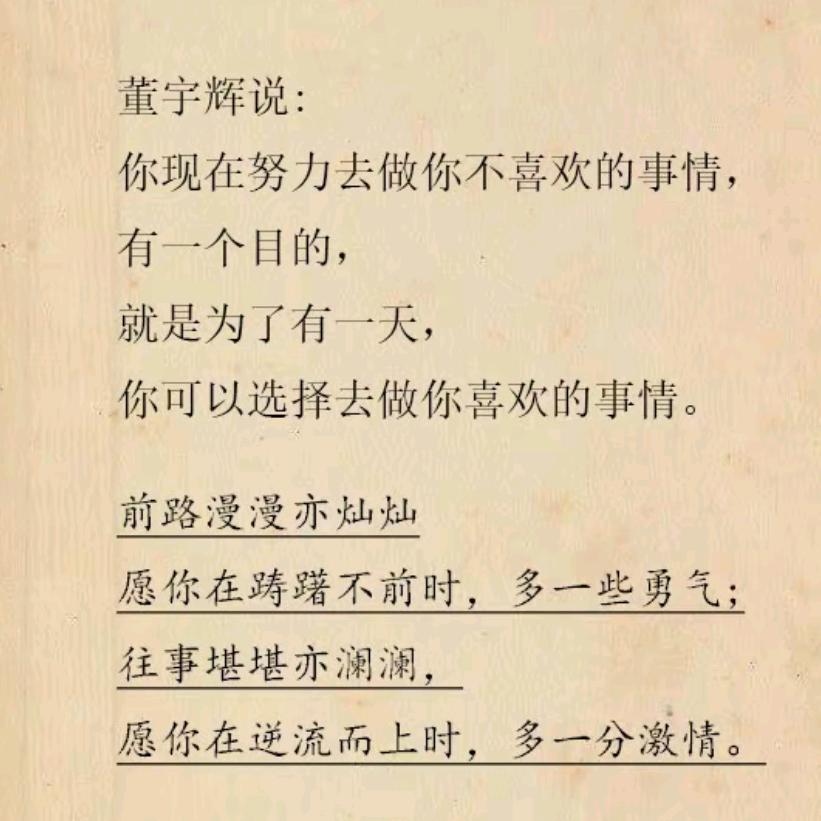 董宇辉说:
你现在努力去做你不喜欢的事情，
有一个目的，
就是为了有一天，
你可以选择去做你喜欢的事情。
前路漫漫亦灿灿
愿你在踌躇不前时，多一些勇气；
往事堪堪亦澜澜，
愿你在逆流而上时，多一分激情。